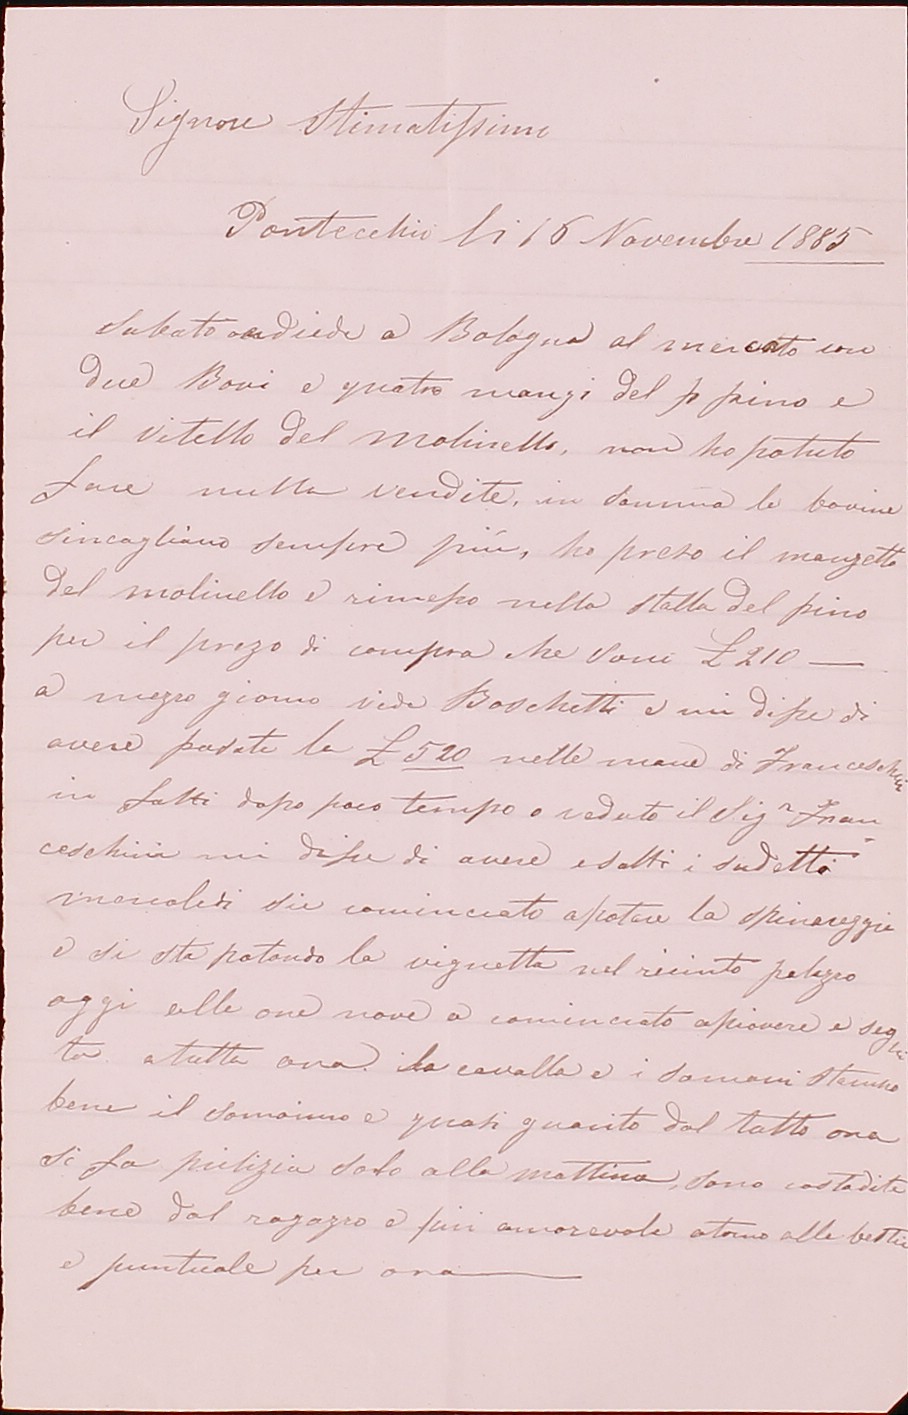 Signore Stimatissimo
Pontecchio li 16 Novembre 1885
Sabato andiede a Bologna al mercato con
due Bovi e quatro mangi del p pino e
il vitello del molinello, non ho potuto
fare nulla vendite, in somma le bovine
sincagliano sempre più, ho preso il manzetto
del molinello e rimesso nella stalla del pino
per il prezo di compra che sono £ 210 —
a mezzo giorno vide Boschetti e mi disse di
avere pasate le £ 520 nelle mane di Franceschini
in fatti dopo poco tempo o veduto il Sigr Fran
ceschini mi disse di avere esatti i sudetti
mercoledi sie cominciato apotare la spinareggia
e si sta potando la vignetta nel recinto palazzo
oggi alle ore nove a cominciato apiovere e segui
ta atutta ora. la cavalla e i somari stanno
bene il somarino e quasi guarito dal tutto ora
si fa pulizia solo alla mattina, sono costodite
bene dal ragazzo e piu amorevole atorno alle bestie
e puntuale per ora —